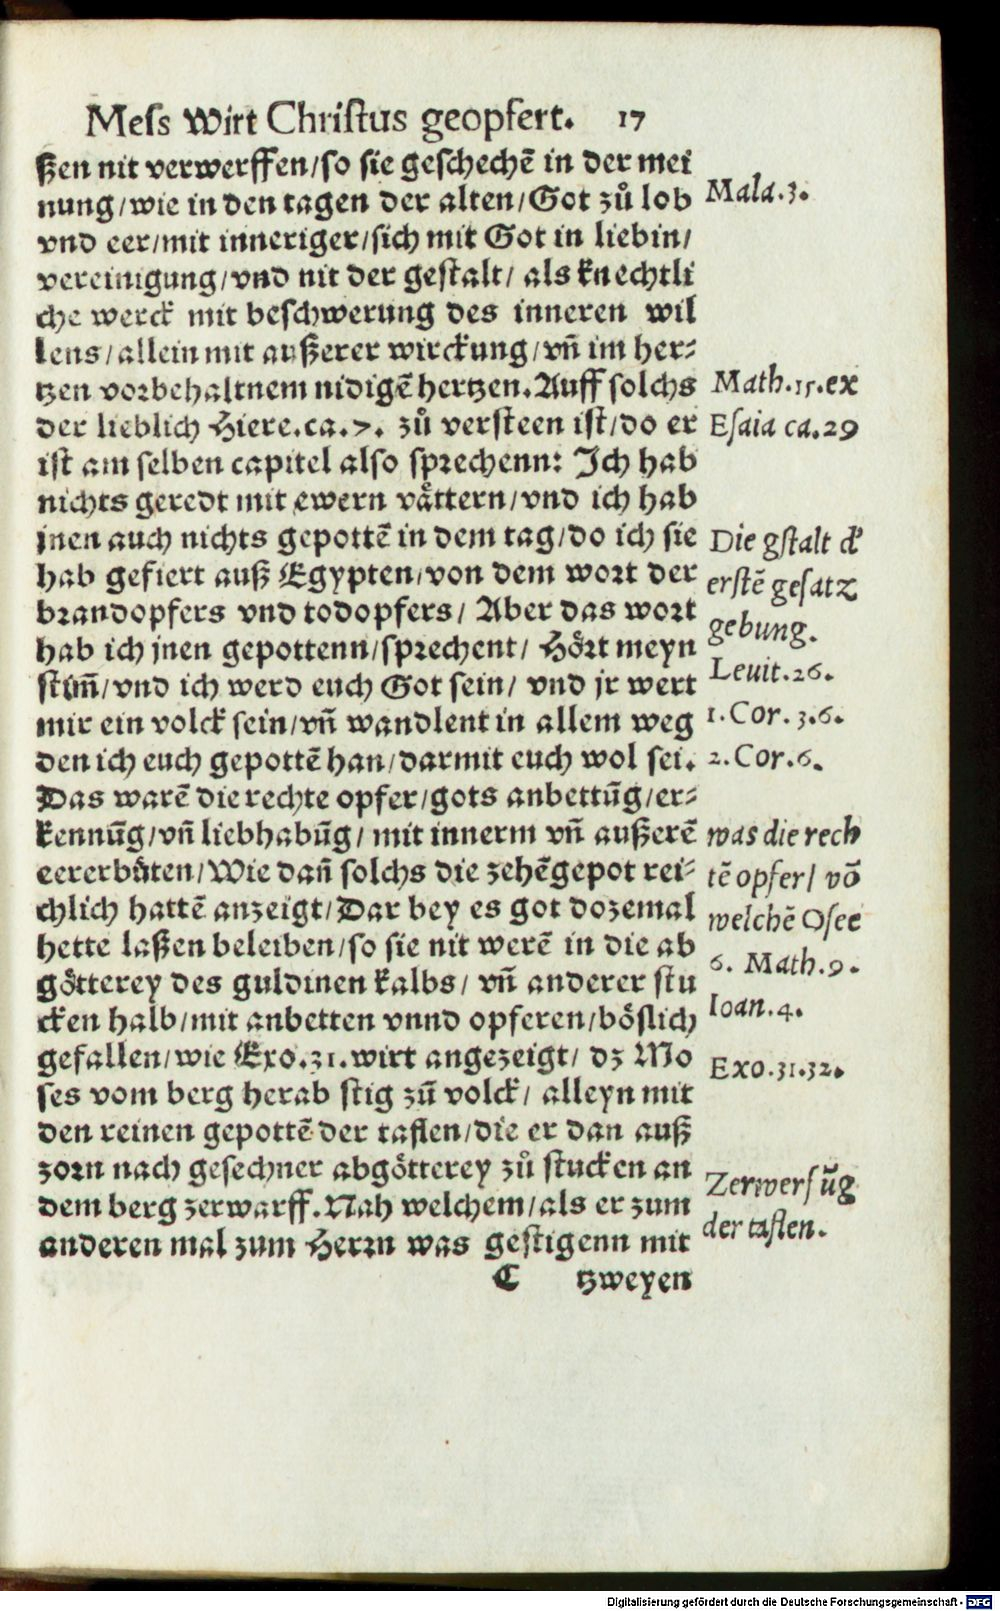 Mess Wirt Christus geopfert. 17
ßen nit verwerffen/so sie geschechē in der mei
nung/wie in den tagen der alten/Got zů lob
vnd eer/mit inneriger/sich mit Got in liebin/
vereinigung/vnd nit der gestalt/ als knechtli
che werck mit beschwerung des inneren wil
lens/allein mit außerer wirckung/vñ im her⸗
tzen vorbehaltnem nidigē hertzen. Auff solchs
der lieblich Hiere.ca.7. zů versteen ist/do er
ist am selben capitel also sprechenn: Ich hab
nichts geredt mit ewern våttern/vnd ich hab
jnen auch nichts gepottē in dem tag/do ich sie
hab gefiert auß Egypten/von dem wort der
brandopfers vnd todopfers/ Aber das wort
hab ich jnen gepottenn/sprechent/ Hört meyn
stim̄/vnd ich werd euch Got sein/ vnd jr wert
mir ein volck sein/vñ wandlent in allem weg
den ich euch gepottē han/darmit euch wol sei.
Das warē die rechte opfer/gots anbettūg/er⸗
kennūg/vñ liebhabūg/ mit innerm vñ außerē
eererbůten/Wie dañ solchs die zehēgepot rei⸗
chlich hattē anzeigt/Dar bey es got dozemal
hette laßen beleiben/so sie nit werē in die ab
götterey des guldinen kalbs/ vñ anderer stu
cken halb/mit anbetten vnnd opferen/böslich
gefallen/wie Exo.31.wirt angezeigt/ dz Mo
ses vom berg herab stig zū volck/ alleyn mit
den reinen gepottē der taflen/die er dan auß
zorn nach gesechner abgötterey zů stucken an
dem berg zerwarff. Nah welchem/als er zum
anderen mal zum Herrn was gestigenn mit
C tzweyen
Mala.3.
Math.15.ex
Esaia ca.29
Die gstalt đ
erstē gesatz
gebung.
Leuit.26.
1.Cor.3.6.
2.Cor.6.
was die rech
tē opfer/ vō
welchē Osee
6. Math.9.
Ioan.4.
Exo.31.32.
Zerwerfūg
der taflen.
Digitalisierung gefördert durch die Deutsche Forschungsgemeinschaft - DFG